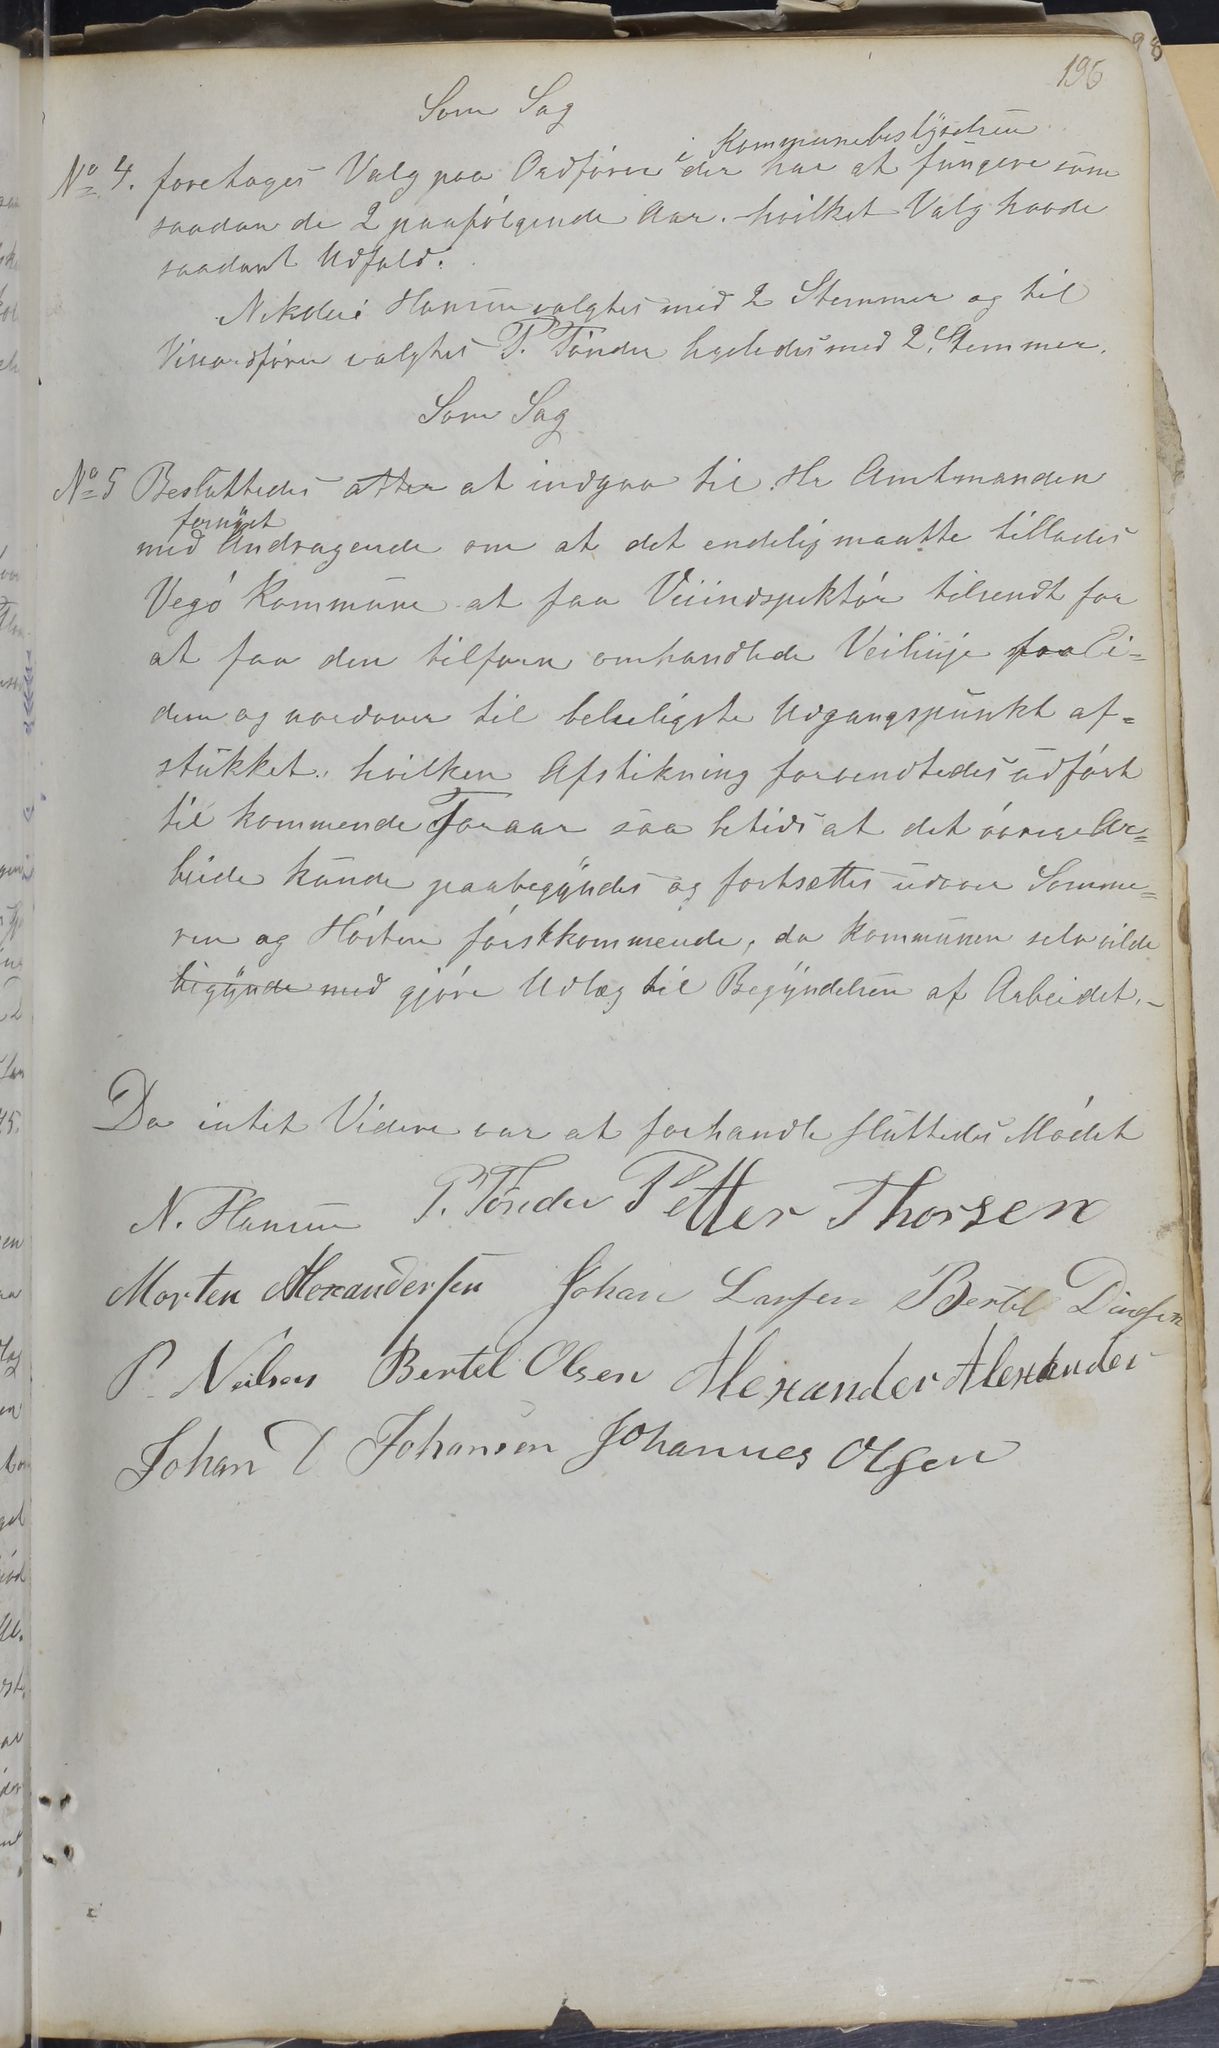 196
Som Sag
i Kommunebestyrelsen
No 4. foretoges Valg paa Ordfører der har at fungere som
saadan de 2 paafølgende Aar. hvilket Valg havde
saadant Udfald:
Nikolai Hansen valgtes med 2 Stemmer og til
Viseordfører valgtes P. Tønder ligeledes med 2 Stemmer.
Som Sag
No 5 Besluttedes atter at indgaa til Hr Amtmanden
fornyet
med Andragende om at det endelig maatte tillades
Vegø Kommune at faa Veiindspektør tilsendt for
at faa den tilforn omhandlede Veilinje fra Ei=
dem og nordover til beleiligste Udgangspunkt af=
stukket; hvilken Afstikning forventedes udført
til kommende Foraar saa betids at det øvrige Ar=
beide kunde paabegyndes og fortsættes udover Somme=
ren og Høsten førstkommende, da Kommunen selv vilde
begynde med gjøre Udlæg til Begyndelsen af Arbeidet.-
Da intet Videre var at forhandle sluttedes Mødet
N. Hansen P. Tønder Petter Thorsen
Morten Alexandersen Johan Larsen Bertel
P. Neilsen Bertel Olsen Alexander Alexander
Johan D Johansen Johannes Olsen